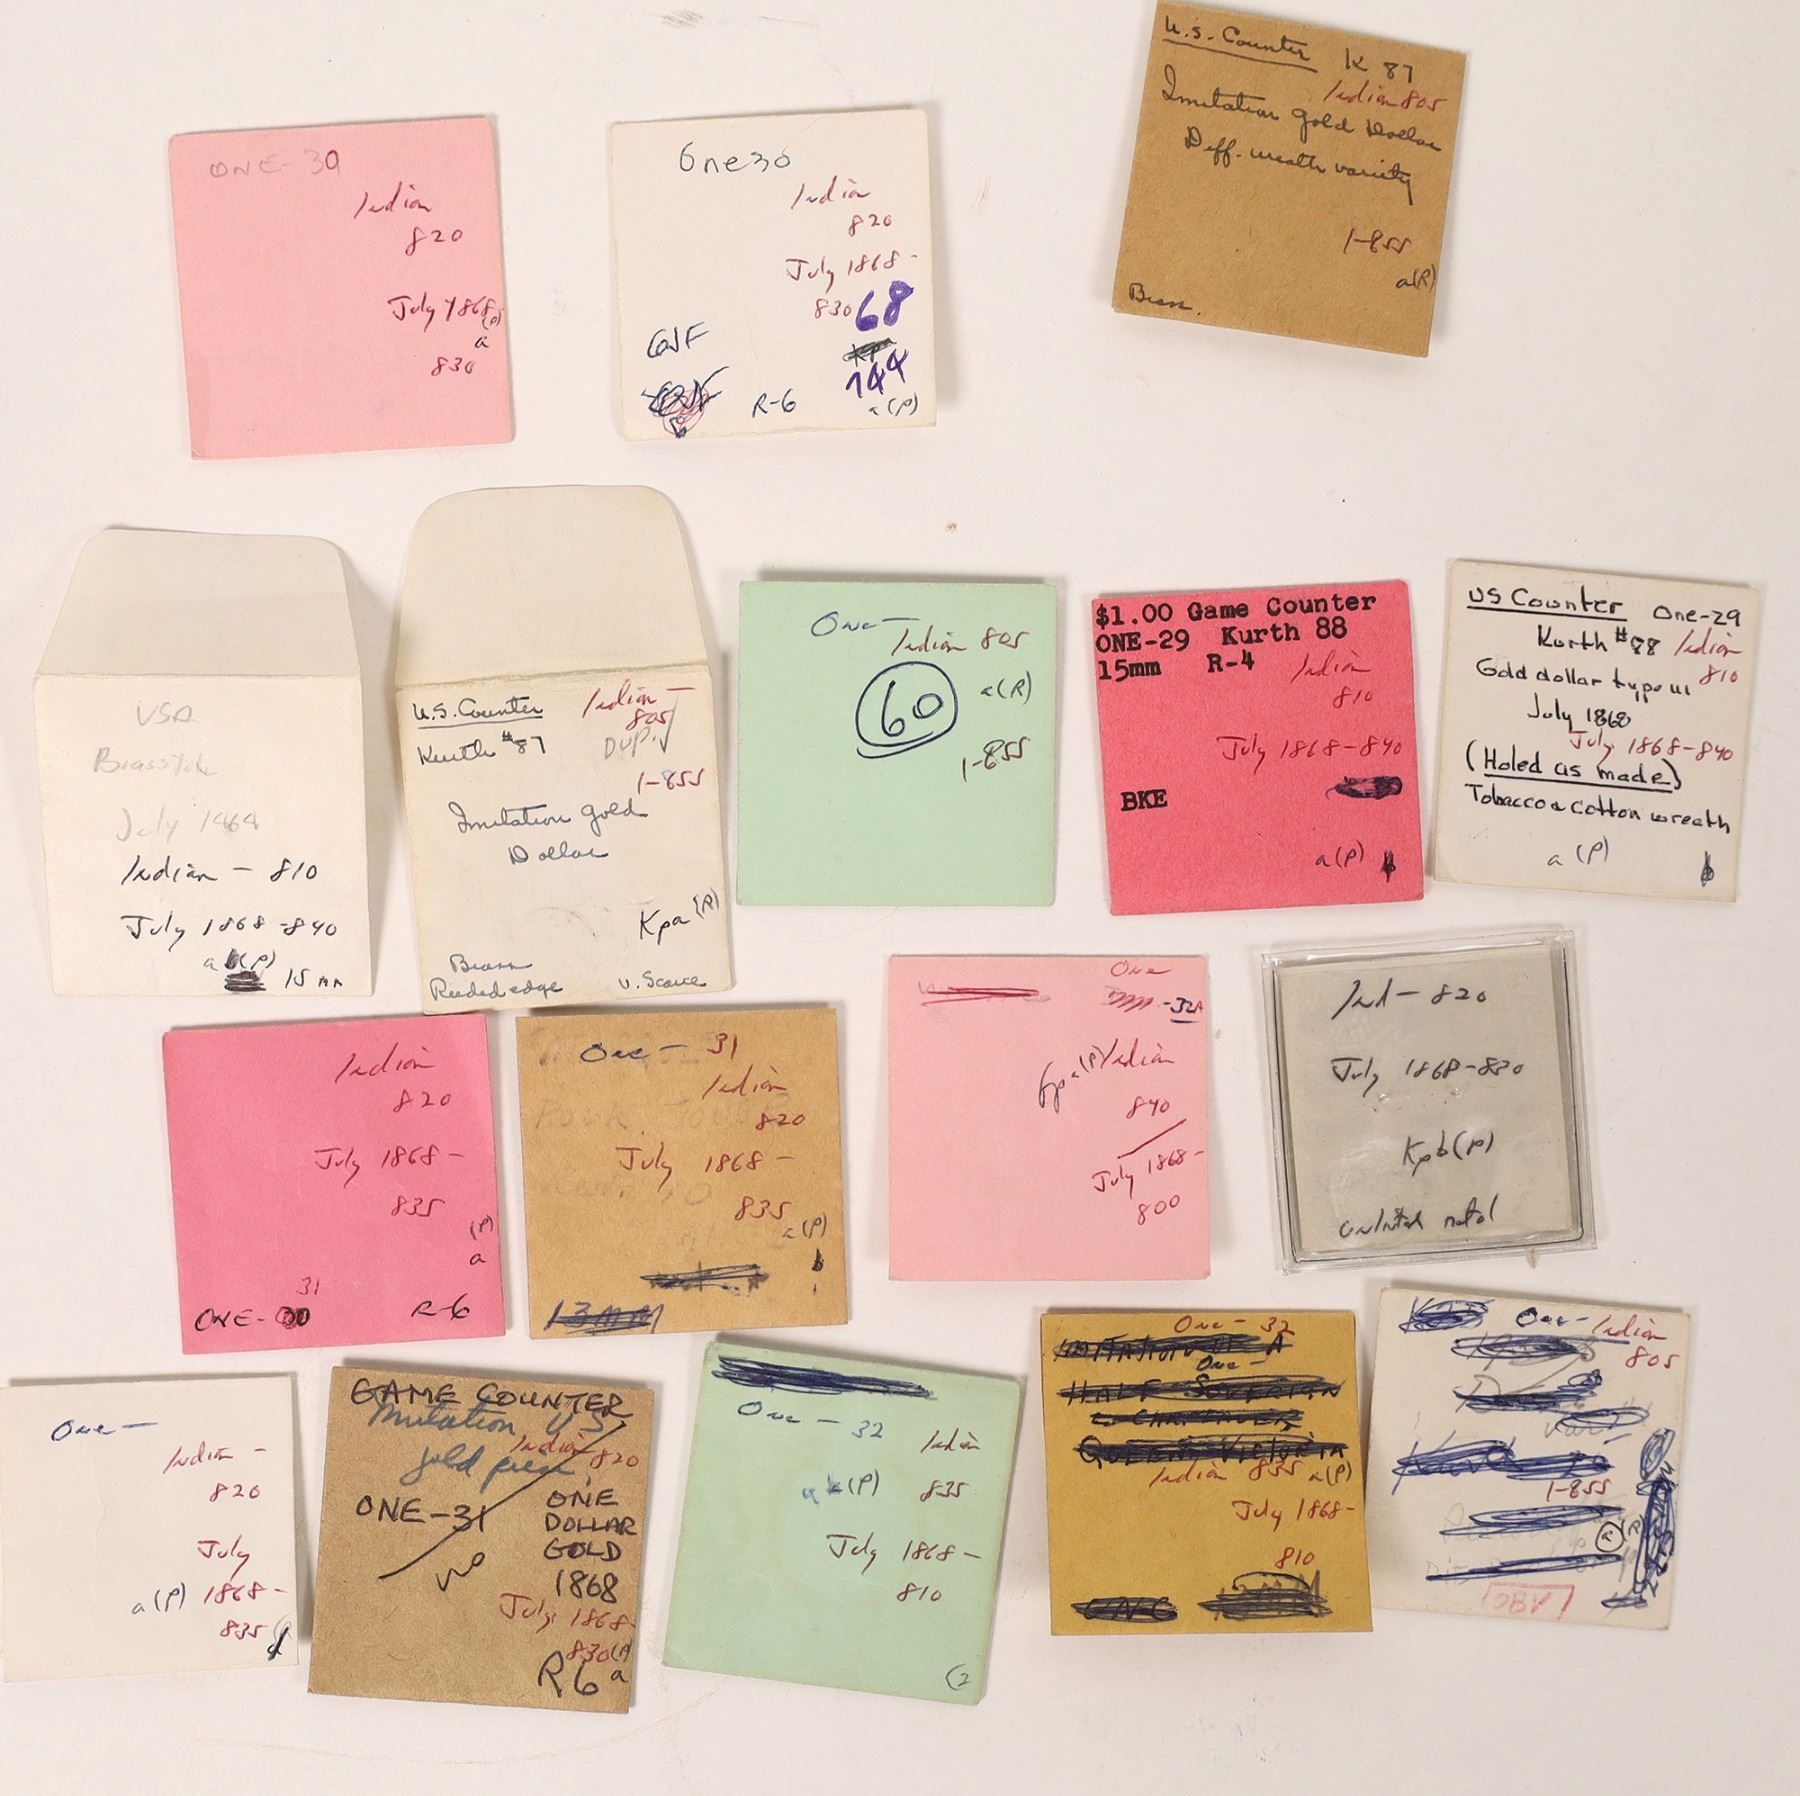 ONE-30
Indian
820
July 1868
(P)
a
830
One 30
Indian
820
July 1868-
830
68
GJF
744
R-6
a(P)
U.S. Counter K 87
Indian 805
Imitation gold Dollar
Diff. wreath variety
1-855
a(R)
Brass.
USA
July 1868
Indian - 810
July 1868-840
a (P)
15 mm
U.S. Counter
Indian -
805
Kurth #87
Dup.
1-855
Imitation gold
Dollar
Kpa (R)
Brass
Reeded edge
V. Scarce
One-
Indian 805
60
a(R)
1-855
$1.00 Game Counter
ONE-29 Kurth 88
15mm R-4
Indian
810
July 1868-840
BKE
a(P)
US Counter One-29
Kurth #88 Indian
810
Gold dollar type III
July 1868
July 1868-840
(Holed as made)
Tobacco & cotton wreath
a (P)
Indian
820
July 1868-
835
(P)
a
31
ONE-30
R-6
One - 31
Indian
820
July 1868-
835
a(P)
13mm
One
-32A
(P) Indian
840
July 1868-
800
Ind - 820
July 1868-830
Kpb(P)
metal
One -
Indian -
820
July
a(P) 1868-
835
GAME COUNTER
Imitation U S
gold piece
Indian 820
ONE-31
ONE
DOLLAR
GOLD
1868
July 1868-
830(P)
R6 a
One - 32
Indian
a (P) 835
July 1868-
810
(2
One - 32
IMITATION OF A
One -
HALF SOVEREIGN
QUEEN VICTORIA
Indian 835 a(P)
July 1868-
810
UNC
One - Indian
805
1-855
(R)
OBV